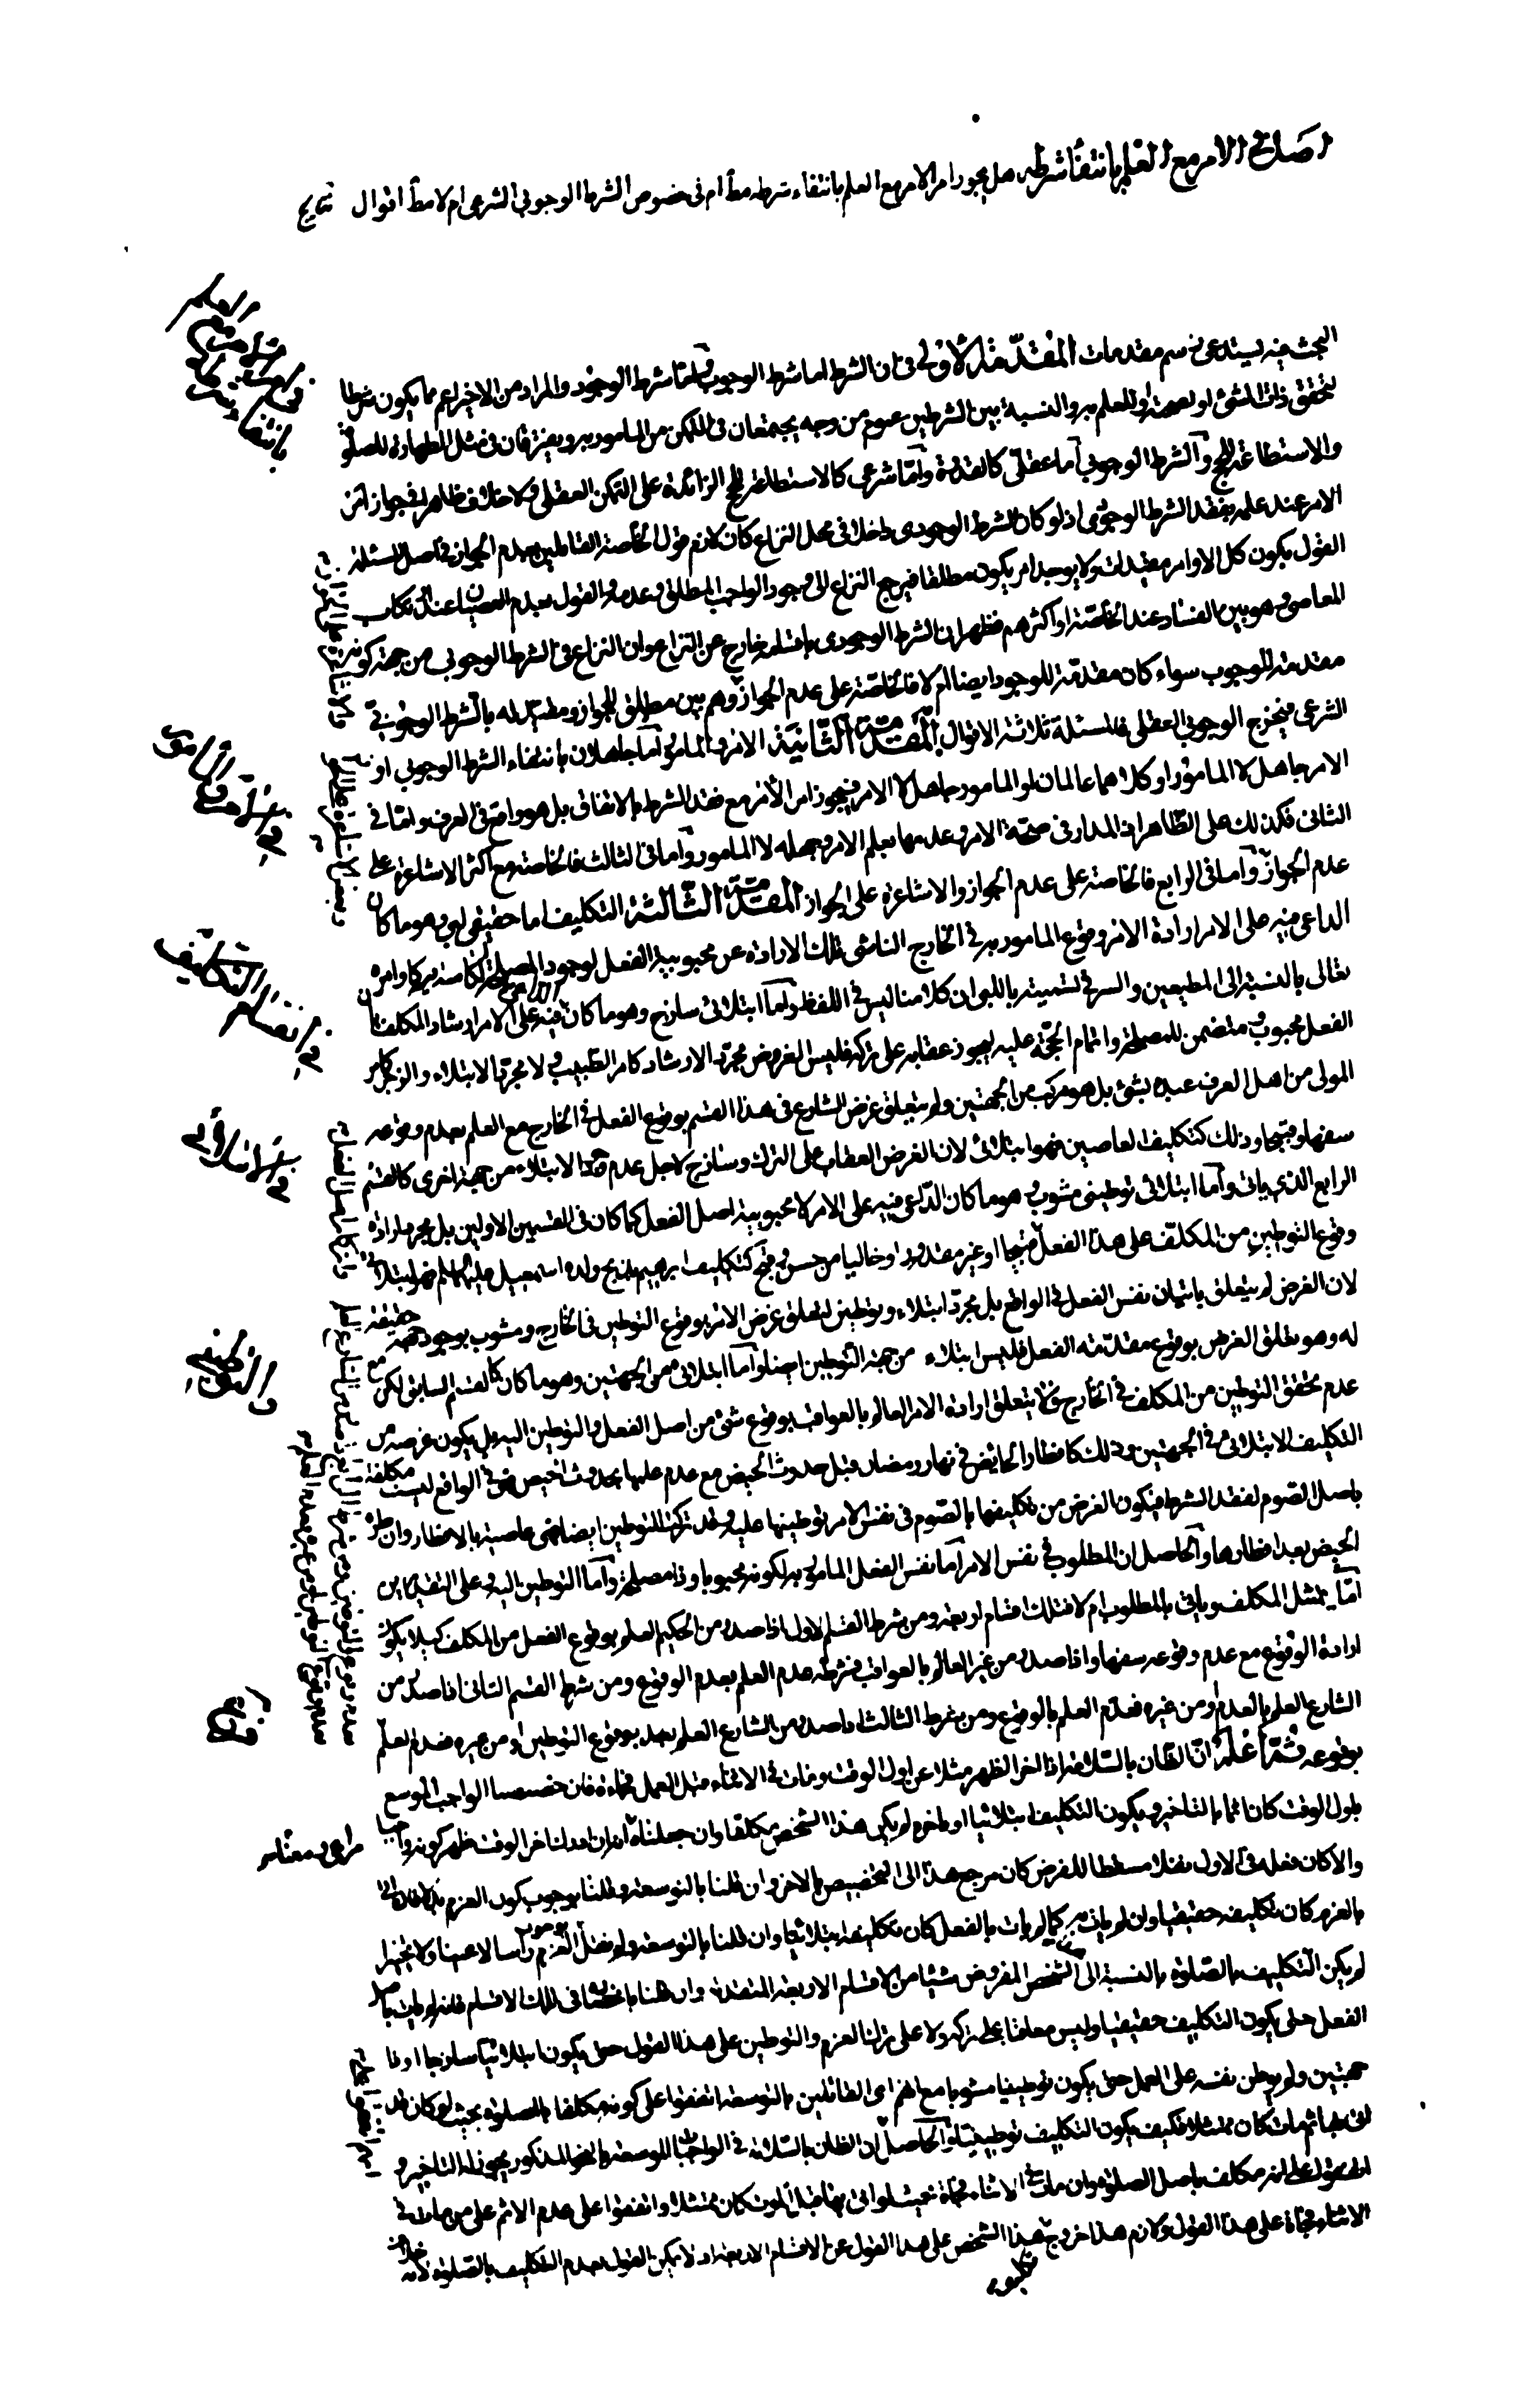 اصل في الامر مع العلم بانتفاء شرطه هل يجوز امر الامر مع العلم بانتفاء شرطه مط ام في خصوص الشرط الوجوبي الشرعي ام لا مط اقوال
البحث فيه يستدعى رسم مقدمات المقدمة الاولى في ان الشرط اما شرط الوجوب واما شرط الوجود والمراد من الاخير اعم مما يكون شرطا
لتحقق ذات الشئ او لصحته او للعلم به والنسبة بين الشرطين عموم من وجه يجتمعان في التمكن من المامور به ويفترقان في مثل الطهارة للصلوة
والاستطاعة للحج والشرط الوجوبي اما عقلي كالقدرة واما شرعي كالاستطاعة للحج الزائدة على التمكن العقلي ولا خلاف ظاهرا في جواز امر
الامر عند علمه بفقد الشرط الوجودي اذ لو كان الشرط الوجودي داخلا في محل النزاع كان لازم قول الخاصة القائلين بعدم الجواز في اصل المسئلة
القول بكون كل الاوامر مقيدات ولا يوجد امر يكون مطلقا فيرجع النزاع الى وجود الواجب المطلق وعدمه والقول بعدم العصيان عند ارتكاب
المعاصي وهو بين الفساد عند الخاصة او اكثرهم فظهر ان الشرط الوجودي باقسامه خارج عن النزاع وان النزاع في الشرط الوجوبي من جهة كونه
مقدمة للوجوب سواء كان مقدمة للوجود ايضا ام لا فالخاصة على عدم الجواز وهم بين مطلق للجواز ومقيد له بالشرط الوجوبي
الشرعي فيخرج الوجوبي العقلي فالمسئلة ثلاثة الاقوال المقدمة الثانية الامر والمامور اما جاهلان بانتفاء الشرط الوجوبي او
الامر جاهل لا المامور او كلاهما عالمان او المامور جاهل لا الامر فيجوز امر الامر مع فقد الشرط بالاتفاق بل هو واقع في العرف واما في
الثاني فكذلك على الظاهر اذ المدار في صحة الامر وعدمها بعلم الامر وجهله لا المامور واما في الثالث فالخاصة مع اكثر الاشاعرة على
عدم الجواز واما في الرابع فالخاصة على عدم الجواز والاشاعرة على الجواز المقدمة الثالثة التكليف اما حقيقي لبي وهو ما كان
الداعي فيه على الامر ارادة الامر وقوع المامور به في الخارج الناشئ تلك الارادة عن محبوبية الفعل لوجود المصلحة الكامنة فيه كاوامره
تعالى بالنسبة الى المطيعين والسر في تسميته باللبي ان كلامنا ليس في اللفظ واما ابتلائي ساذج وهو ما كان الداعي فيه على الامر ارشاد المكلف بان
الفعل محبوب ومتضمن للمصلحة واتمام الحجة عليه ليجوز عقابه على تركه فليس الغرض مجرد الارشاد كامر الطبيب ولا مجرد الابتلاء والزجر كامر
المولى من اهل العرف عبده بشئ بل هو مركب من الجهتين ولم يتعلق غرض الشارع في هذا القسم بوقوع الفعل في الخارج مع العلم بعدم وقوعه
سفها وقبيحا وذلك كتكليف العاصين فهو ابتلائي لان الغرض العقاب على الترك وساذج لاجل عدم الابتلاء من جهة اخرى كالقسم
الرابع الذي ياتي واما ابتلائي توطيني مشوب وهو ما كان الداعي فيه على الامر لا محبوبية اصل الفعل كما كان في القسمين الاولين بل مجرد ارادة
وقوع التوطين من المكلف على هذا الفعل قبيحا او غير مقدور او خاليا من حسن وقبح كتكليف ابرهيم بذبح ولده اسمعيل عليهما السلم فهو ابتلائي
لان الغرض لم يتعلق باتيان نفس الفعل في الواقع بل مجرد ابتلاء وتوطين لتعلق غرض الامر بوقوع التوطين في الخارج ومشوب بوجود جهة حقيقة
له وهو تعلق الغرض بوقوع مقدمة الفعل فليس ابتلاء من جهة التوطين ايضا واما ابتلائي من الجهتين وهو ما كان كالقسم السابق لكن مع
عدم تحقق التوطين من المكلف في الخارج فلا يتعلق ارادة الامر العالم بالعواقب بوقوع شئ من اصل الفعل والتوطين اليه بل يكون غرضه من
التكليف الابتلائي في الجهتين وذلك كافطار الحائض في نهار رمضان قبل حدوث الحيض مع عدم علمها بحدوث الحيض فهي في الواقع ليست مكلفة
باصل الصوم لفقد الشرط فيكون الغرض من تكليفها بالصوم في نفس الامر توطينها عليه وقد تركت التوطين ايضا فهي عاصية بالافطار وان طرء
الحيض بعد افطارها والحاصل ان المطلوب في نفس الامر اما نفس الفعل المامور به لكونه محبوبا وذا مصلحة واما التوطين اليه وعلى التقديرين
اما يمتثل المكلف وياتي بالمطلوب ام لا فتلك اقسام اربعة ومن شرط القسم الاول اذا صدر من الحكيم العلم بوقوع الفعل من المكلف كيلا يكون
ارادة الوقوع مع عدم وقوعه سفها واذا صدر من غير العالم بالعواقب فشرطه عدم العلم بعدم الوقوع ومن شرط القسم الثاني اذا صدر من
الشارع العلم بالعدم او من غيره فعدم العلم بالوقوع ومن شرط الثالث اذا صدر من الشارع العلم بعد بوقوع التوطين او من غيره فعدم العلم
بوقوعه ثم اعلم ان الظان بالسلامة اذا اخر الظهر مثلا عن اول الوقت ومات في الاثناء قبل العمل فجاءة فان خصصنا الواجب الموسع
باول الوقت كان اثما بالتاخير ويكون التكليف ابتلائيا او باخره لم يكن هذا الشخص مكلفا وان جعلناه مراعى فان ادرك اخر الوقت ظهر كونه واجبا
والا كان فعله في الاول نفلا مسقطا للفرض كان مرجع هذا الى التخصيص بالاخر وان قلنا بالتوسعة وقلنا بوجوب كون العزم بدلا فان اتى
بالعزم كان تكليفه حقيقيا وان لم يات به كما لم يات بالفعل كان تكليفه ابتلائيا وان قلنا بالتوسعة ولم نقل بوجوب العزم راسا لا عينا ولا تخييرا
لم يكن التكليف بالصلوة بالنسبة الى الشخص المفروض شيئا من الاقسام الاربعة المتقدمة وان قلنا في تلك الاقسام فانه لم يات باصل
الفعل حتى يكون التكليف حقيقيا وليس معاقبا على تركه ولا على ترك العزم والتوطين على هذا القول حتى يكون ابتلائيا ساذجا او ذا
جهتين ولم يوطن نفسه على العمل حتى يكون توطينيا مشوبا مع انهم اي القائلين بالتوسعة اتفقوا على كونه مكلفا بالصلوة بحيث لو كان قد
اتى بها ثم مات كان ممتثلا فكيف يكون التكليف توطينيا والحاصل ان الظان بالسلامة في الواجبات الموسعة بالنحو المذكور يجوز له التاخير و
على انه مكلف باصل الصلوة وان مات في الاثناء فجاءة بحيث لو اتى بها قبل الموت كان ممتثلا واتفقوا على عدم الاثم على من مات في
الاثناء فجاءة على هذا القول ولازم هذا خروج هذا الشخص على هذا القول عن الاقسام الاربعة اذ لا يمكن القول بعدم التكليف بالصلوة لانه خلاف